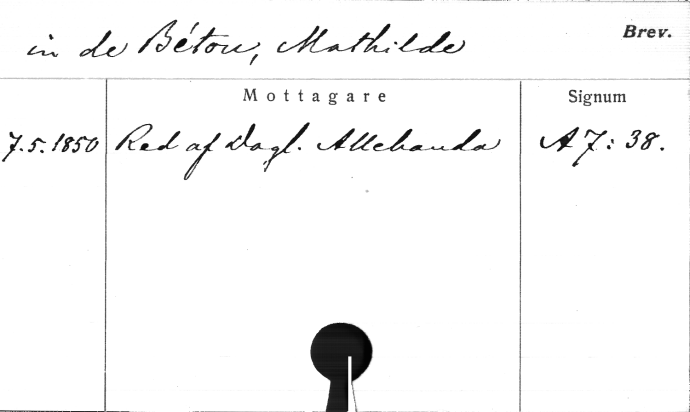 in de Béton, Mathilde Brev.
Mottagare Signum
7.5.1850 Red af Dagl. Allehanda A 7: 38.